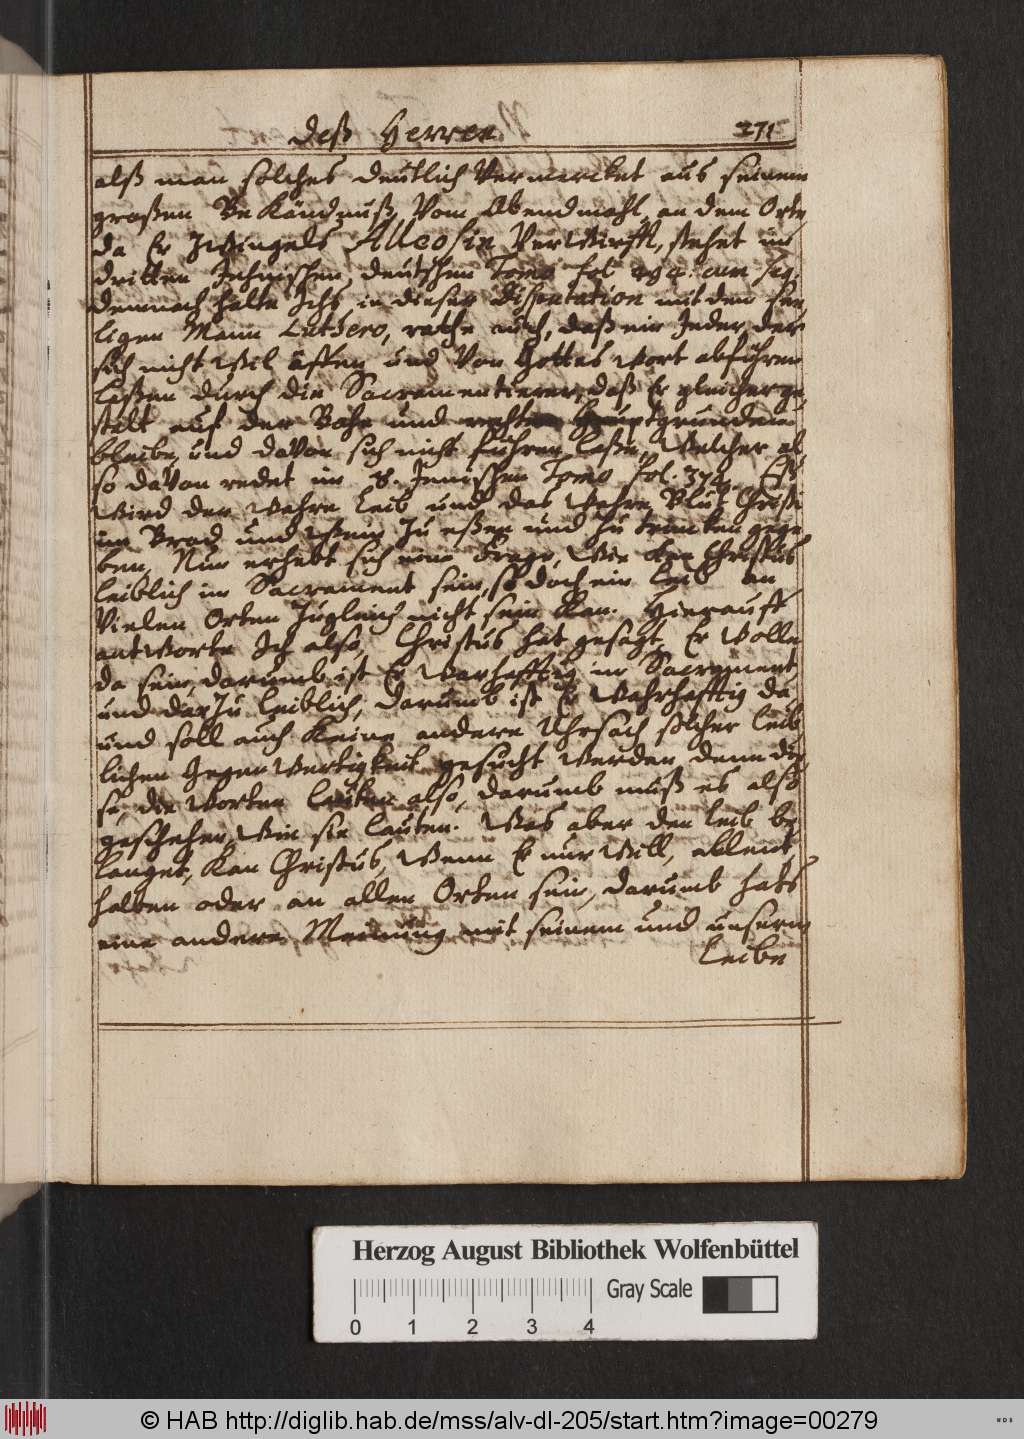 Deß Herren 271
alß man solches deutlich Vermercket aus seinem
großen Bekändnuß Vom Abendmahl, an dem Orte,
da Er Zwingels Alleosin Verwirfft, stehet im
dritten Jehnischen deutschen Tomo fol. 494. cum seq.
demnach halte Ichs in dieser Disputation mit dem hey
ligen Mann Luthero, rathe auch, daß ein Jeder, der
sich nicht wil äffen und Von Gottes Wort abführen
laßen durch die Sacramentierer, daß Er gleicher ge
stalt auf der Bahn und rechten Hauptgrunde
bleibe, und davon sich nicht führen laße, Welcher al
so davon redet im 8. Jenischen Tomo fol. 374. Es
wird der wahre Leib und das wahre Blut Christi
im Brod und Wein zu eßen und zu trincken gege
ben, Nun erhebt sich eine Frage, Wie kan Christus
leiblich im Sacrament sein, so doch ein Leib an
Vielen Orten zugleich nicht sein kan. Hierauff
antworte Ich also, Christus hat gesagt, Er wolle
da sein, darumb ist Er warhafftig im Sacrament
und darzu leiblich, darumb ist Er wahrhafftig da
und soll auch keine andere Uhrsach solcher leib
lichen Gegenwertigkeit gesucht werden, denn die
se, die worten lauten also, darumb muß es also
geschehen, Wie sie lauten. Was aber den Leib be
langet, kan Christus, Wenn Er nur will, allent
halben oder an allen Orten sein, darumb hats
eine andere Meinung mit seinem und unserm
Leibe
Herzog August Bibliothek Wolfenbüttel
Gray Scale
0 1 2 3 4
© HAB http://diglib.hab.de/mss/alv-dl-205/start.htm?image=00279